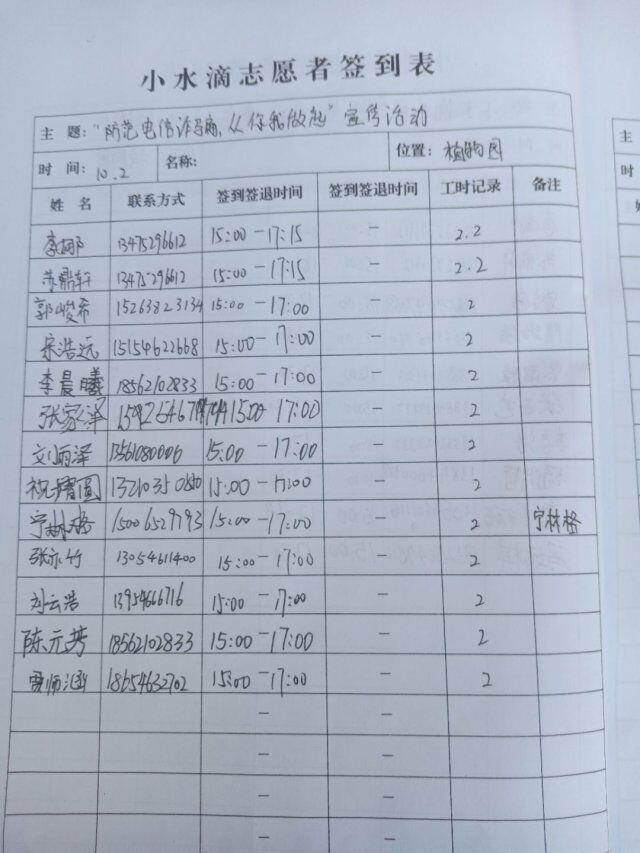 小水滴志愿者签到表
主 题："防范电信诈骗,从你我做起"宣传活动
时 间: 10.2 名称: 位置: 植物园
姓 名 联系方式 签到签退时间 签到签退时间 工时记录 备注
13475296612 15:00-17:15 - 2.2
苏鼎轩 13475296612 15:00-17:15 - 2.2
郭峻希 15263823134 15:00-17:00 - 2
宋浩远 15154622668 15:00-17:00 - 2
李晨曦 18562102833 15:00-17:00 - 2
张家泽 15:00 17:00 - 2
刘雨泽 13561080006 15:00-17:00 - 2
15:00-17:00 - 2
宁林格 15006529793 15:00-17:00 - 2 宁林格
张亦竹 13054611400 15:00-17:00 - 2
刘云浩 13954666716 15:00-17:00 - 2
陈元芳 18562102833 15:00-17:00 - 2
贾师涵 18654632702 15:00-17:00 - 2
- -
- -
- -
- -